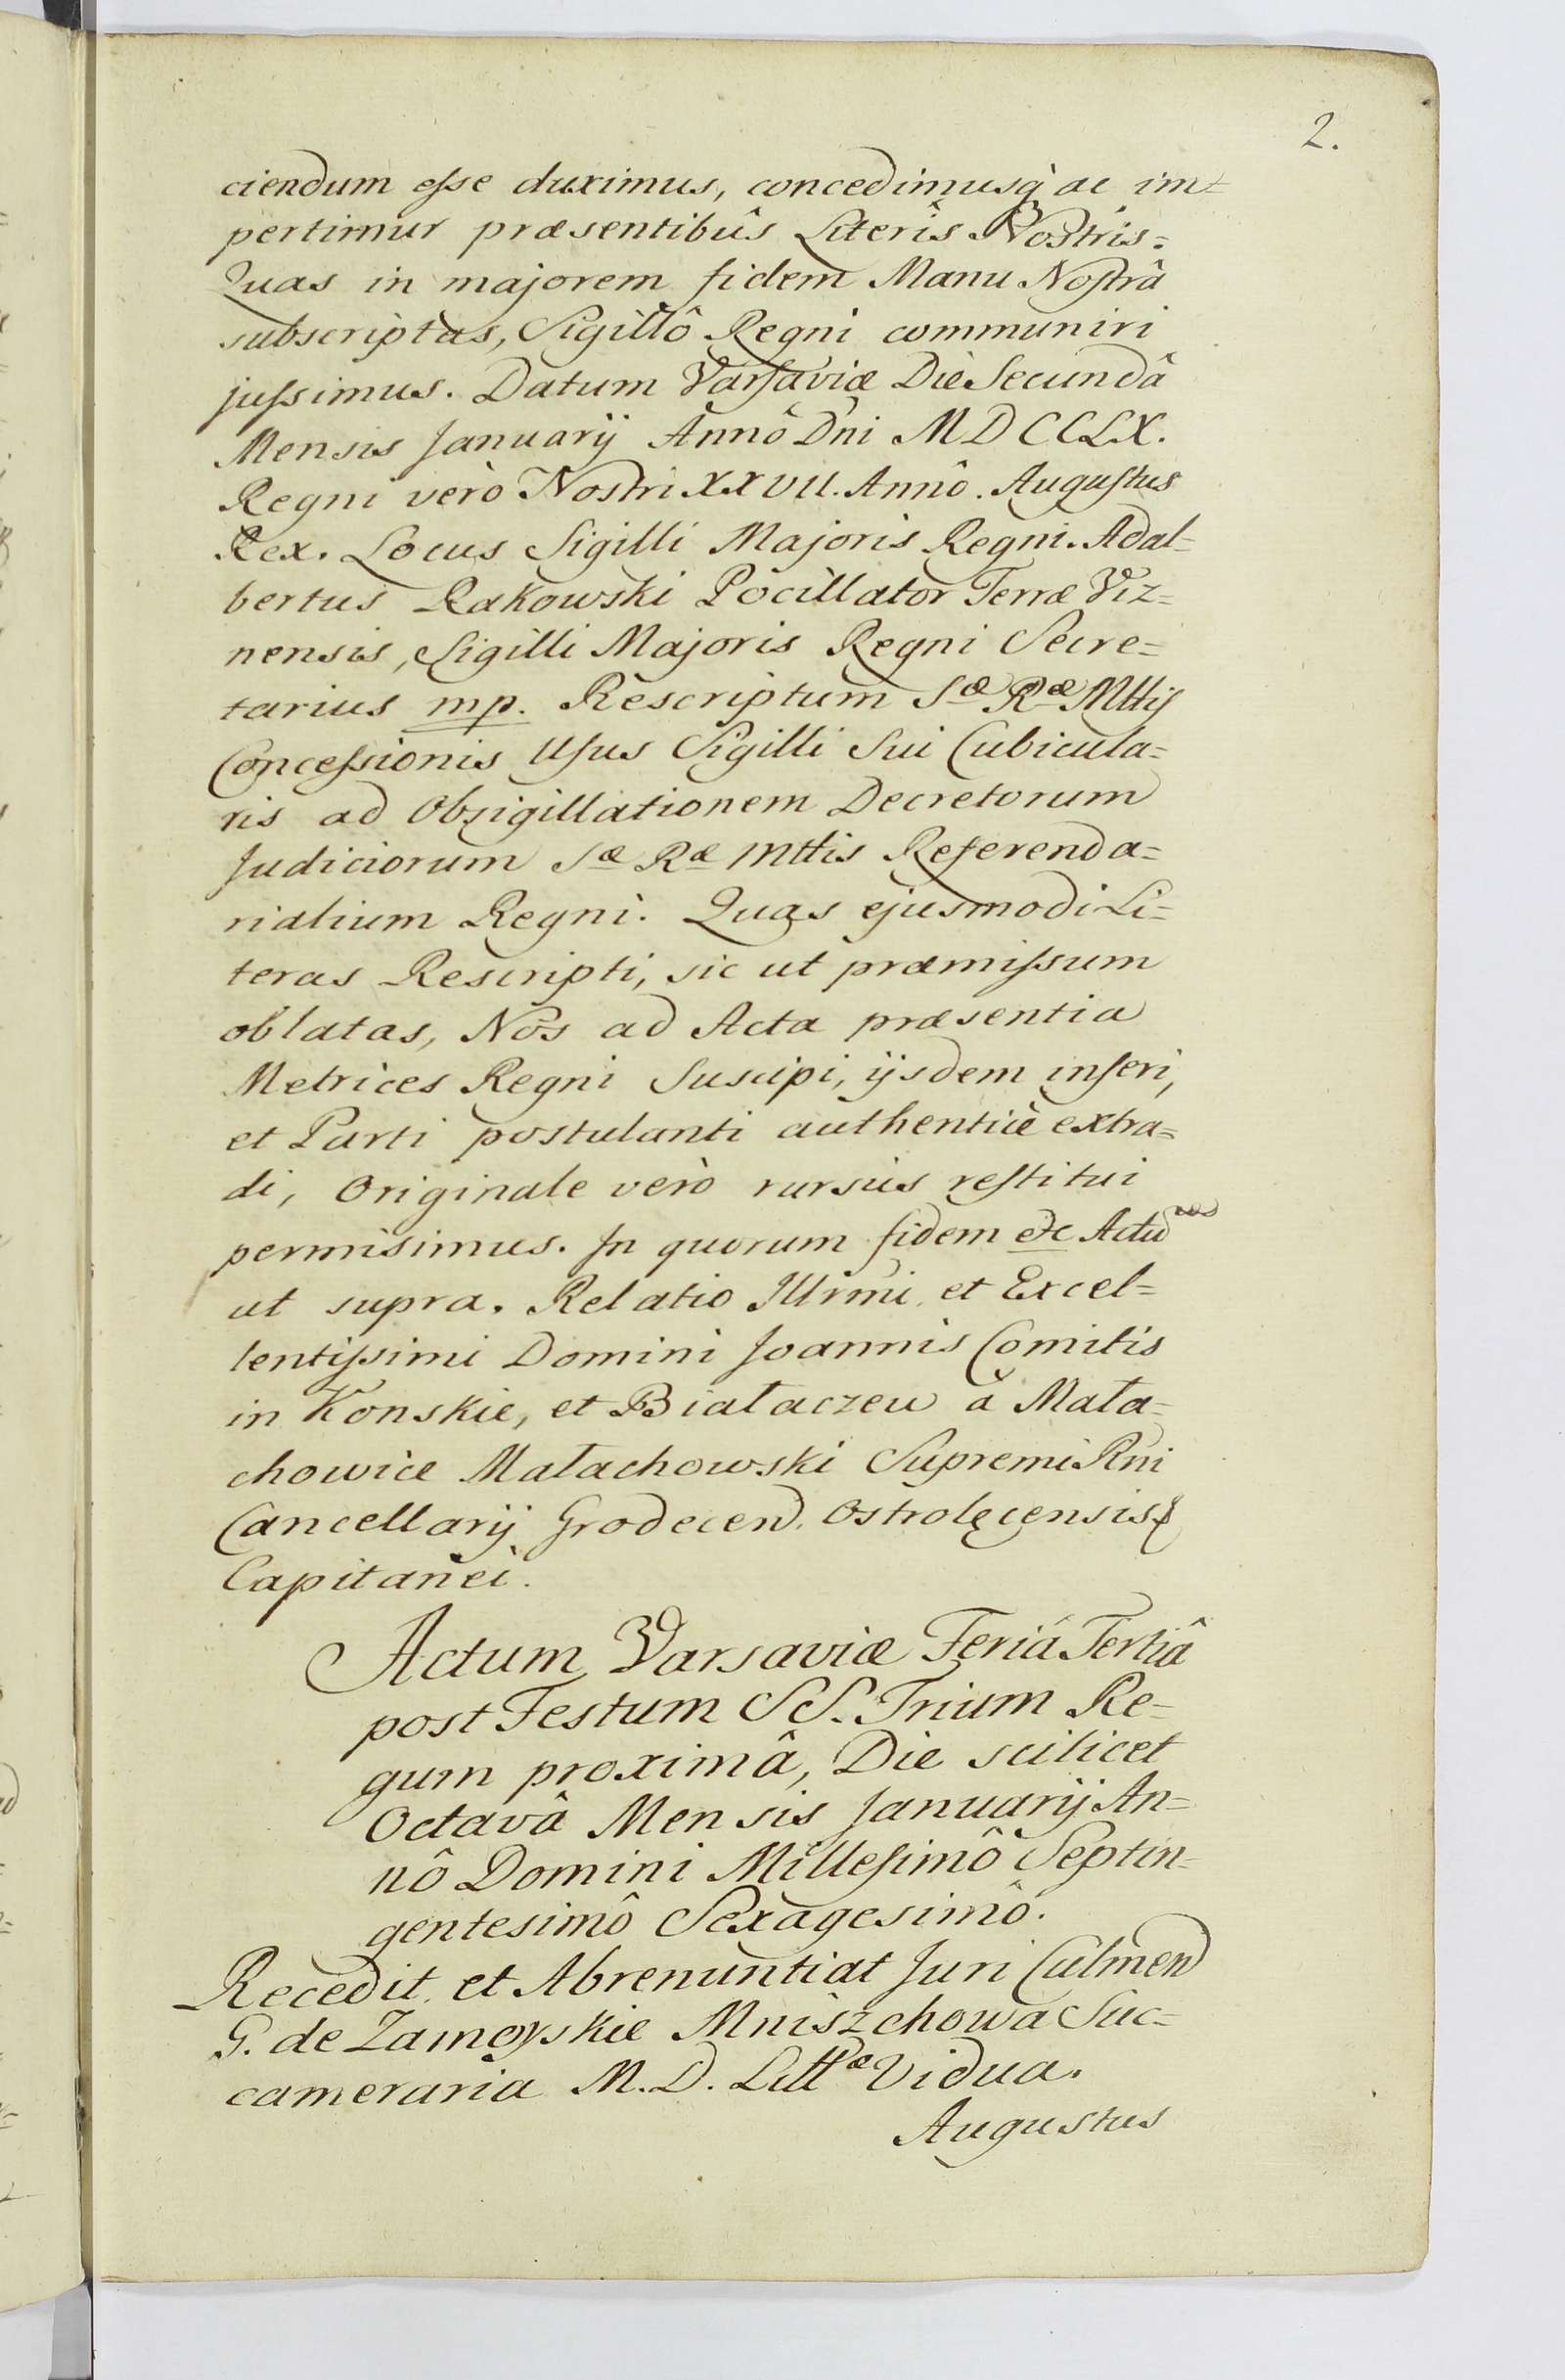 2.
ciendum esse duximus, concedimusq́ ac im=
pertimur præsentibûs Literis Nostris.
Quas in majorem fidem Manu Nostrâ
subscriptas, Sigillô Regni communiri
jussimus. Datum Varsaviæ Die Secundâ
Mensis Januarij Annô Dni MDCCLX.
Regni verò Nostri XXVII. Annô. Augustus
Rex. Locus Sigilli Majoris Regni. Adal=
bertus Rakowski Pocillator Terræ Viz=
nensis, Sigilli Majoris Regni Secre=
tarius mp. Rescriptum Sæ Ræ Mttis
Concessionis Usus Sigilli Sui Cubicula=
ris ad Obsigillationem Decretorum
Judiciorum Sæ Ræ Mttis Referenda=
rialium Regni. Quas ejusmodi Li=
teras Rescripti, sic ut præmissum
oblatas, Nos ad Acta præsentia
Metrices Regni Suscipi, ijsdem inseri,
et Parti postulanti authenticè extra=
di, Originale verò rursus restitui
permisimus. In quorum fidem etc Actu
ut supra. Relatio Illrmi et Excel=
lentissimi Domini Joannis Comitis
in Konskie, et Białaczew à Mała=
chowice Małachowski Supremi Rni
Cancellarij Grodecen. Ostrolęcensis
Capitanei.
Actum Varsaviæ Feriâ Tertiâ
post Festum SS. Trium Re=
gum proximâ, Die scilicet
Octavâ Mensis Januarij An=
nô Domini Millesimô Septin=
gentesimô Sexagesimô.
Recedit et Abrenuntiat Juri Culmen
G. de Zamoyskie Mniszchowa Suc=
cameraria M. D. Littæ Vidua.
Augustus